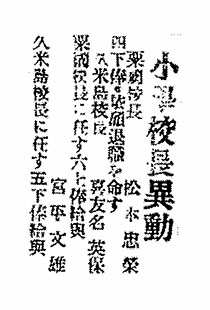 小学校長異動
粟国校長 松本忠榮
四下俸を給依願退職を命す
久米島校長 喜友名英保
粟國校長に任す六七俸給與
宮平文雄
久米島校長に任す五下俸給與